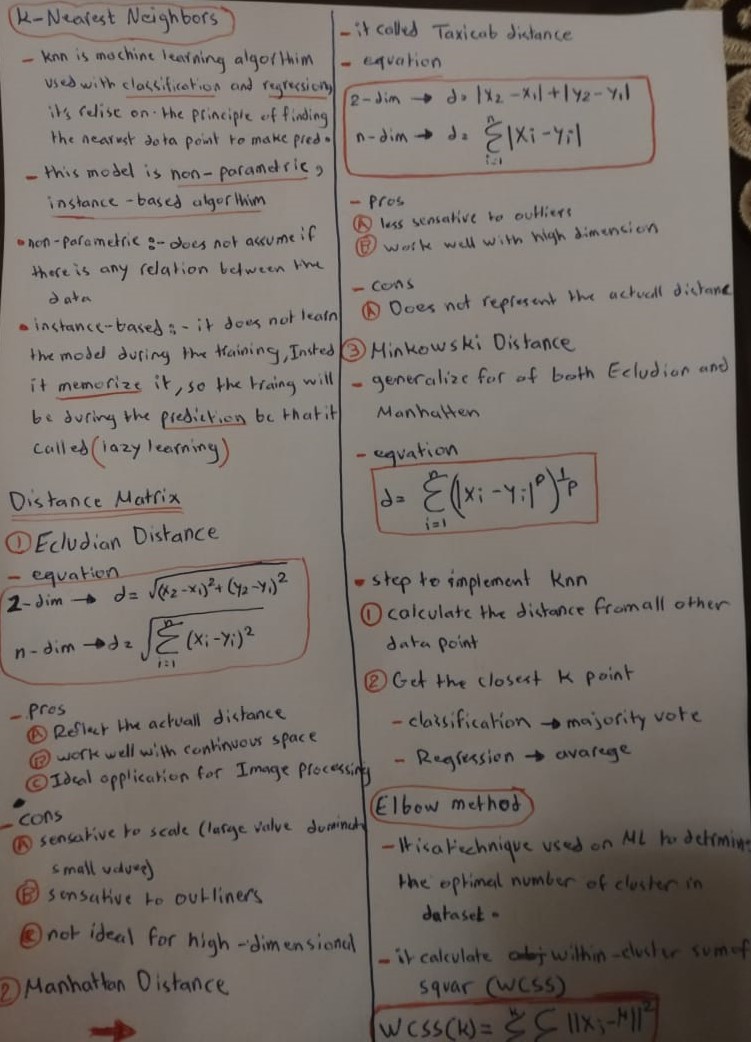 K-Nearest Neighbors
- Knn is machine learning algorthim
used with classification and regression,
it's relise on the principle of finding
the nearest data point to make pred.
- this model is non-parametric,
instance-based algorthim
• non-parametric :- does not assume if
there is any relation between the
data
• instance-based :- it does not learn
the model during the training, Insted
it memorize it, so the traing will
be during the prediction be that it
called (lazy learning)
Distance Matrix
① Ecludian Distance
- equation
2-dim → d = √(x₂-x₁)² + (y₂-y₁)²
n-dim → d = √∑ᵢ₌₁ⁿ (xᵢ-yᵢ)²
- Pros
Ⓐ Reflect the actuall distance
Ⓑ work well with continuous space
Ⓒ Ideal application for Image processing
- cons
Ⓐ sensative to scale (large value dominate
small values)
Ⓑ sensative to outliners
Ⓒ not ideal for high-dimensional
② Manhattan Distance
→
- it called Taxicab distance
- equation
2-dim → d = |x₂ - x₁| + |y₂ - y₁|
n-dim → d = ∑ᵢ₌₁ⁿ |xᵢ - yᵢ|
- Pros
Ⓐ less sensative to outliers
Ⓑ work well with high dimension
- cons
Ⓐ Does not represent the actuall distanc
③ Minkowski Distance
- generalize for of both Ecludion and
Manhatten
- equation
d = ∑ᵢ₌₁ⁿ (|xᵢ - yᵢ|ᵖ)^(1/p)
• step to implement Knn
① calculate the distance from all other
data point
② Get the closest K point
- classification → majority vote
- Regression → avarege
Elbow method
- It is a technique used on ML to detrmin
the optimal number of cluster in
dataset.
- it calculate within-cluster sum of
squar (WCSS)
WCSS(k) = ∑ ∑ ||xᵢ - μ||²